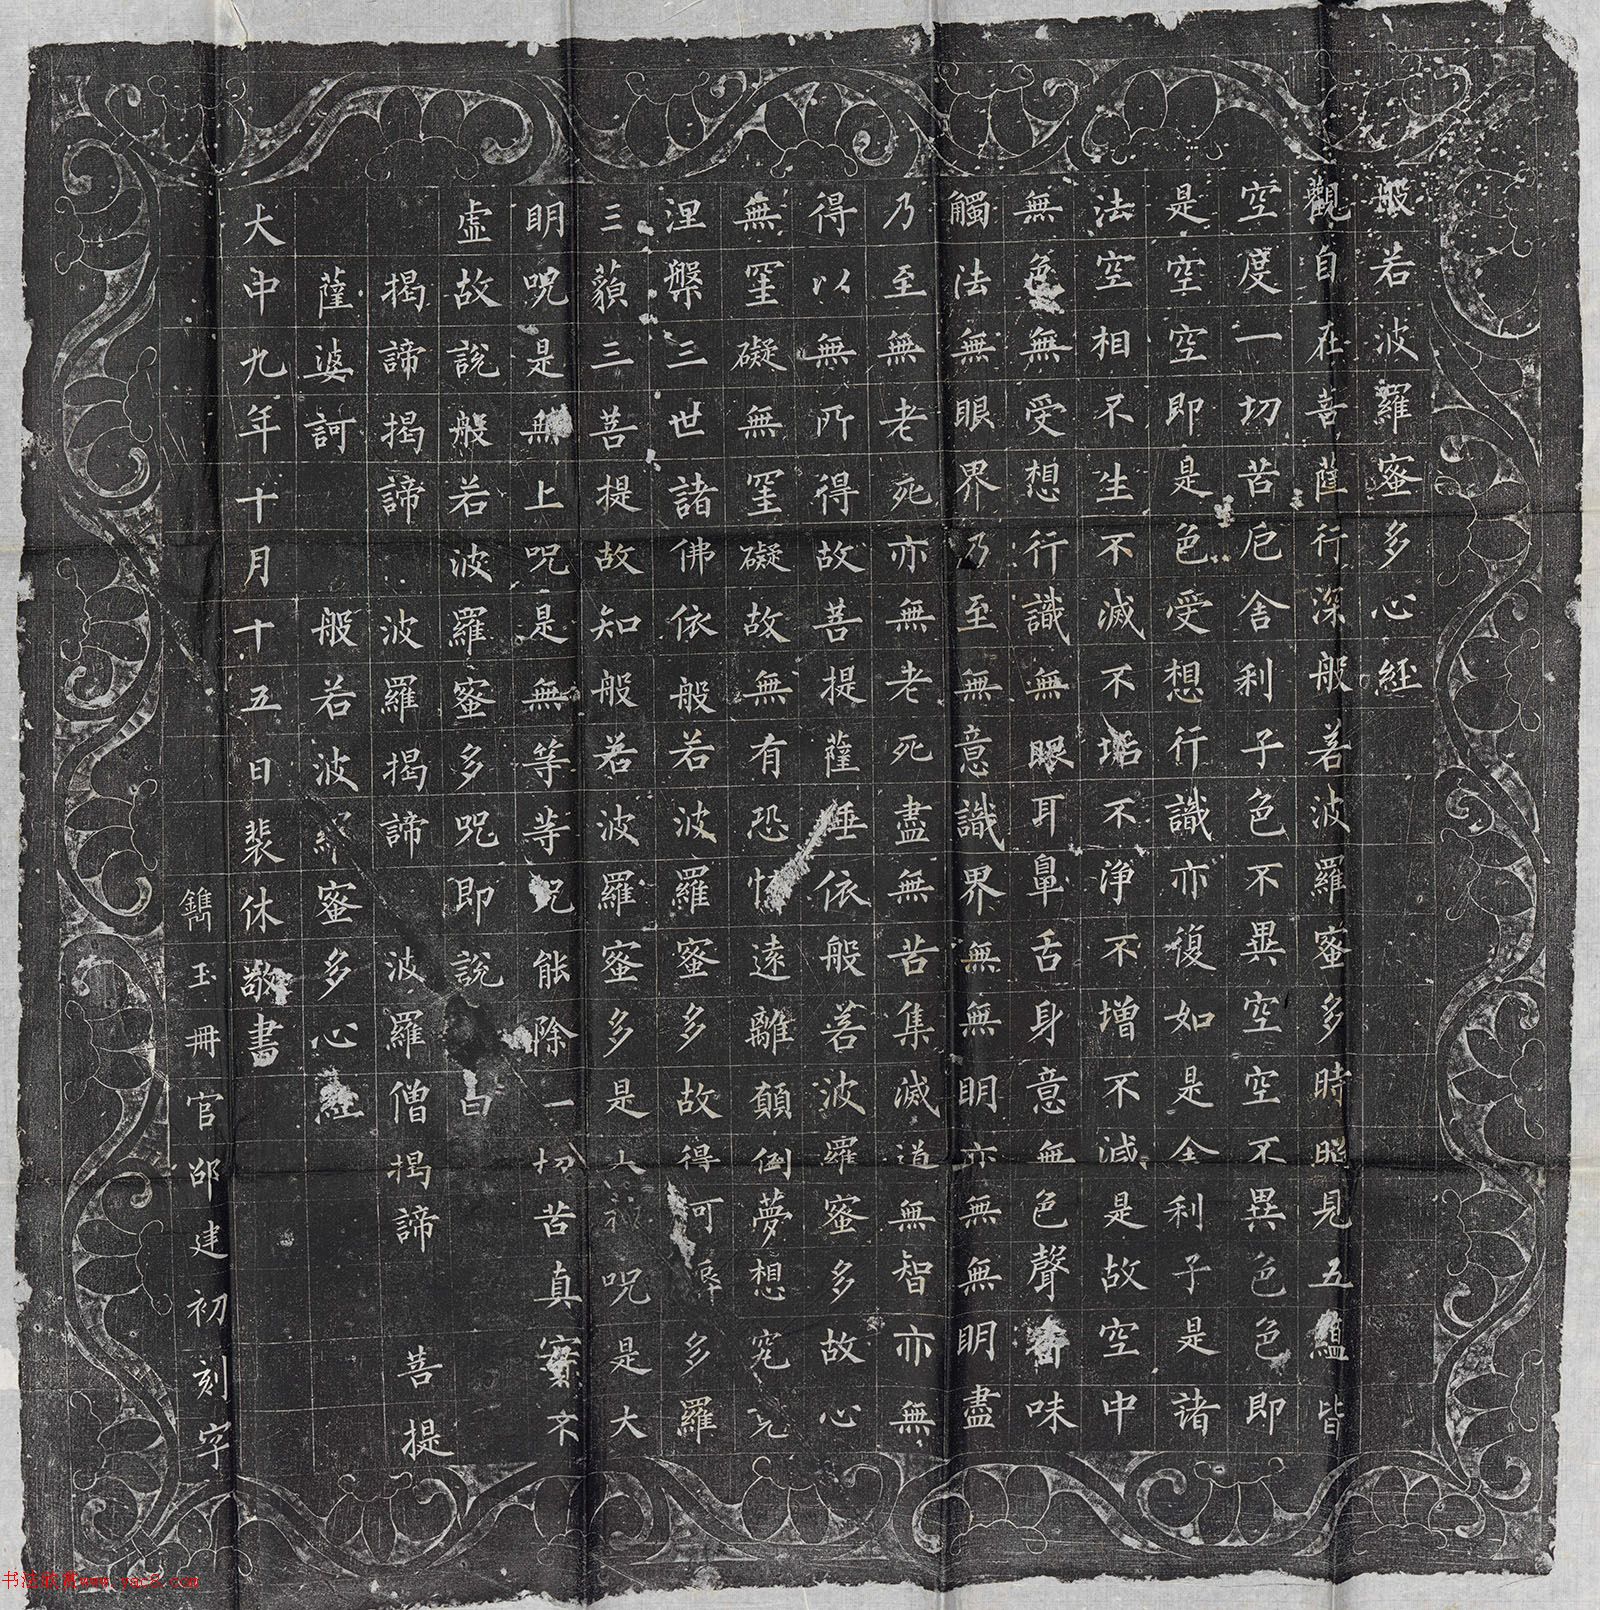 般若波羅蜜多心經
觀自在菩薩行深般若波羅蜜多時照見五蘊皆
空度一切苦厄舍利子色不異空空不異色色即
是空空即是色受想行識亦復如是舍利子是諸
法空相不生不滅不垢不淨不增不減是故空中
無色無受想行識無眼耳鼻舌身意無色聲香味
觸法無眼界乃至無意識界無無明亦無無明盡
乃至無老死亦無老死盡無苦集滅道無智亦無
得以無所得故菩提薩埵依般若波羅蜜多故心
無罣礙無罣礙故無有恐怖遠離顛倒夢想究竟
涅槃三世諸佛依般若波羅蜜多故得阿耨多羅
三藐三菩提故知般若波羅蜜多是大神呪是大
明呪是無上呪是無等等呪能除一切苦真實不
虛故說般若波羅蜜多呪即說 曰
揭諦揭諦 波羅揭諦 波羅僧揭諦 菩提
薩婆訶 般若波羅蜜多心經
大中九年十月十五日裴休敬書
鐫玉冊官邵建初刻字
书法欣赏www.yac8.com